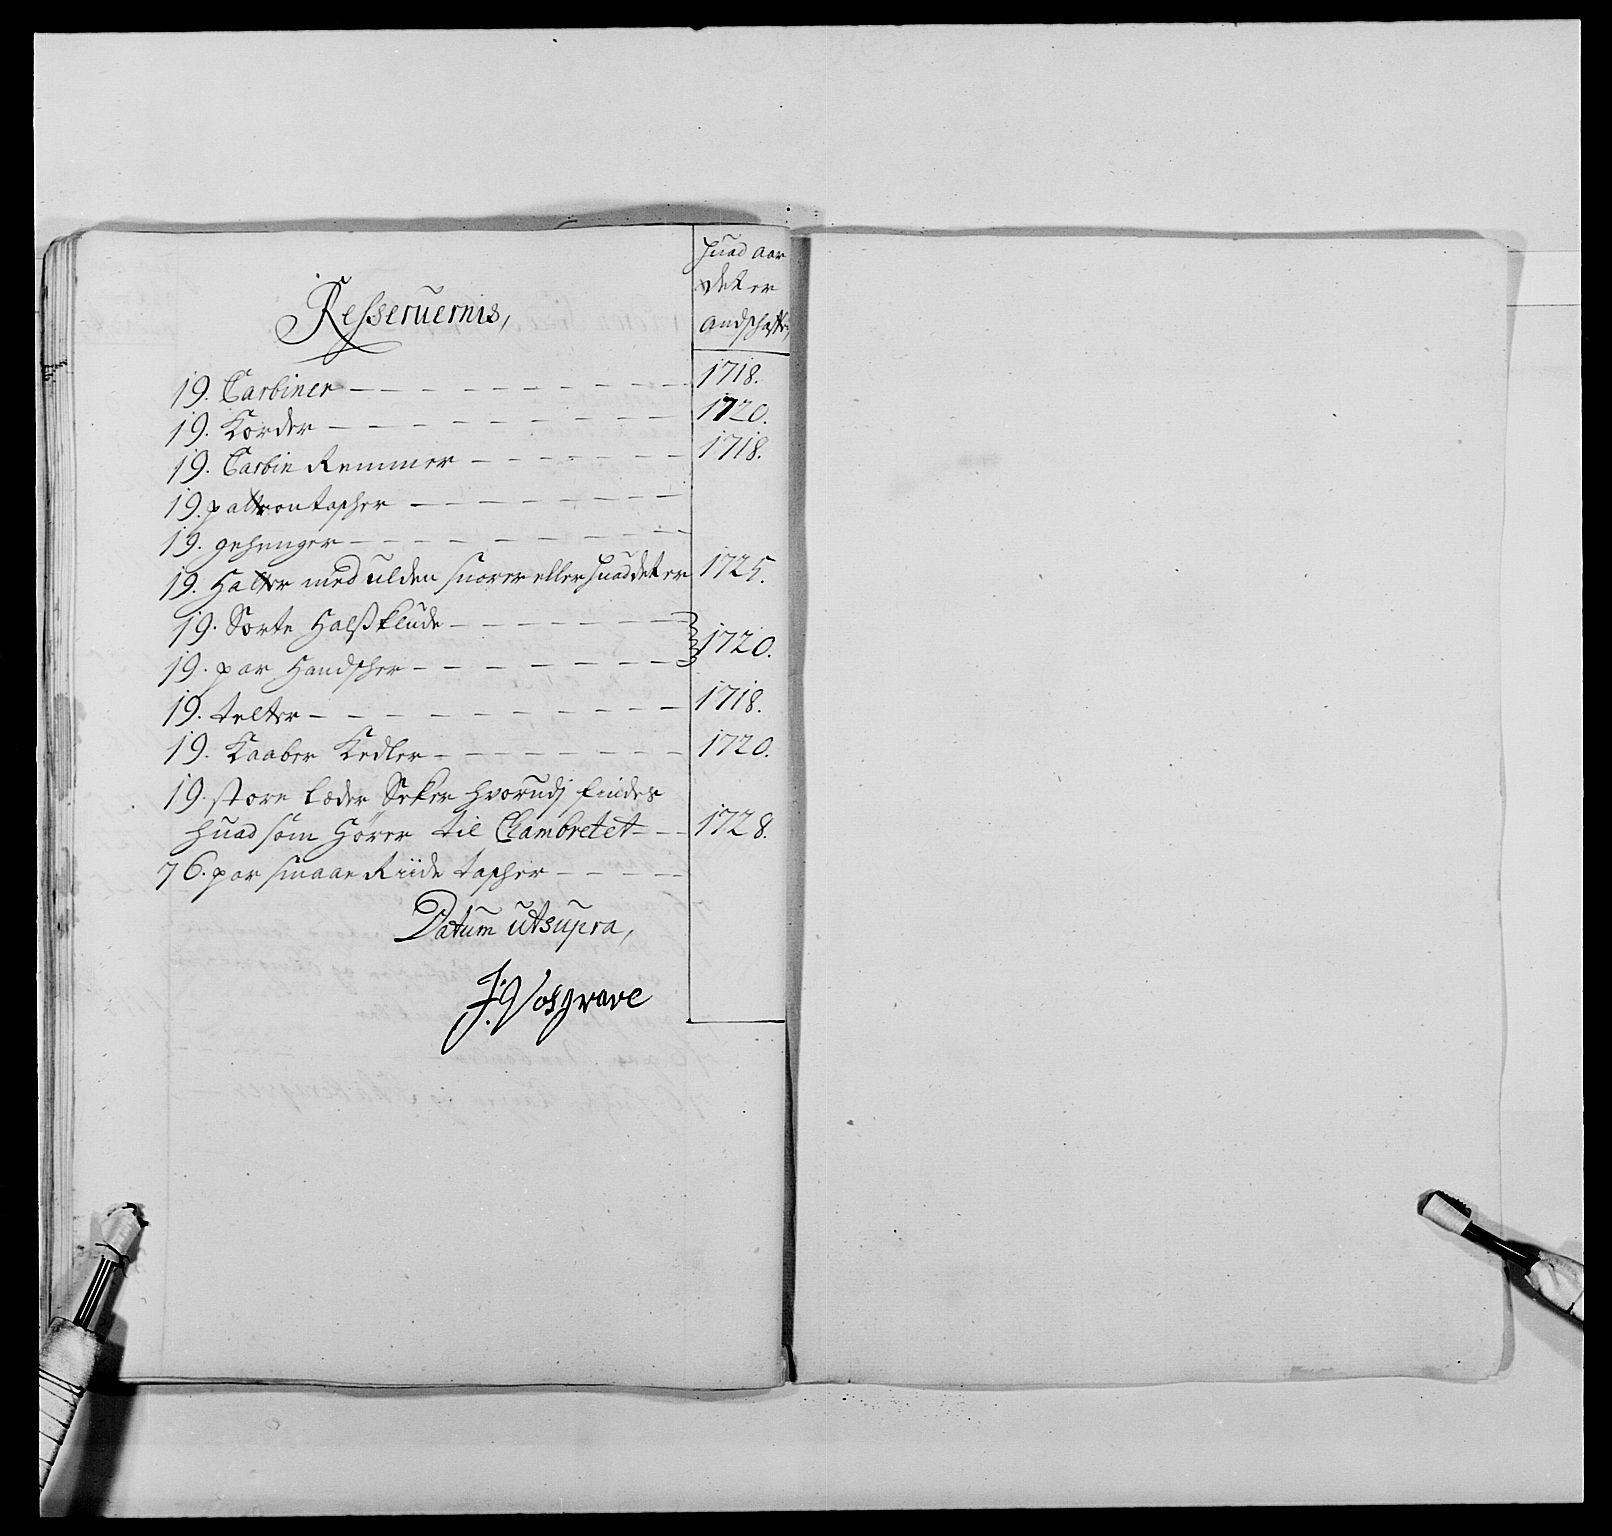 Huad aar
det er
andschaffet,
Resseruernis,
19. Carbiner — 1718.
19. Korder — 1720.
19. Carbin Remmer — 1718.
19. pattrontascher —
19. gehenger —
19. Hatter med ulden snorer eller huad det er 1725.
19. Sorte Halsklude —
19. par Handscher — 1720.
19. telter — 1718.
19. Kaaber Kedler — 1720.
19. store læder Seker hvorudj findes
huad som hører til Chambretet — 1728.
76. par smaae Riide tascher —
Datum utsupra,
J. Vosgrave